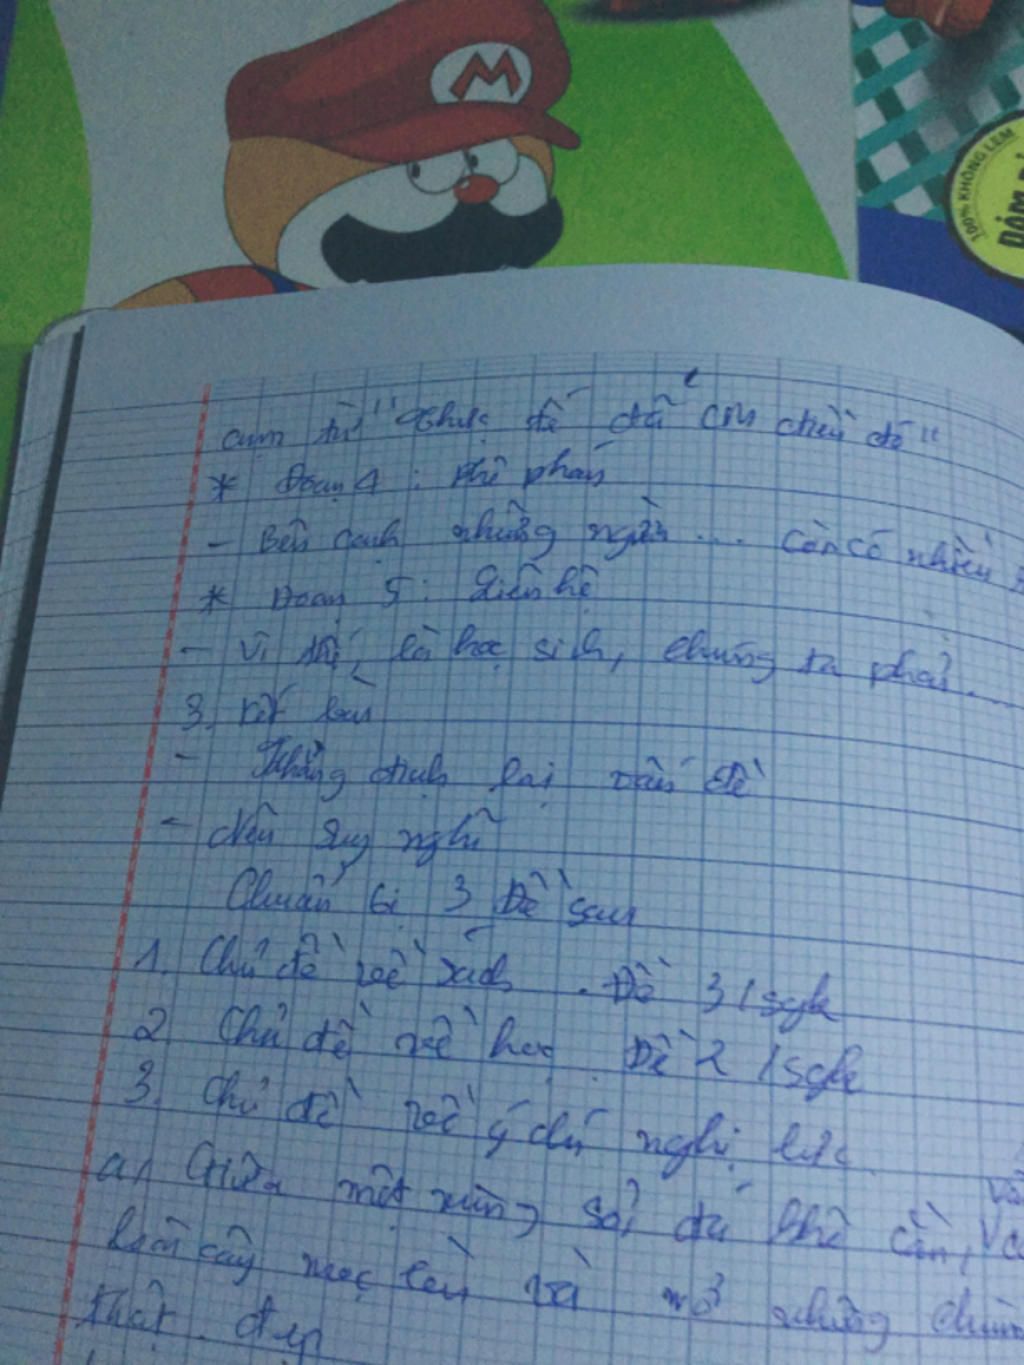 M
100% KHÔNG LEM
cụm từ "Thực tế đã cm điều đó"
* Đoạn 4: Phê phán
- Bên cạnh những người ... còn có nhiều
* Đoạn 5: Liên hệ
- Vì thế, là học sinh, chúng ta phải...
3. Kết bài
- Khẳng định lại vấn đề
- Nêu suy nghĩ
Chuẩn bị 3 Đề sau
1. Chủ đề về sách. Đề 3 / sgk
2 Chủ đề về học. Đề 2 / sgk
3. Chủ đề về ý chí nghị lực
a, Giữa một vùng sỏi đá khô cằn,
loài cây mọc lên và nở những
thật đẹp